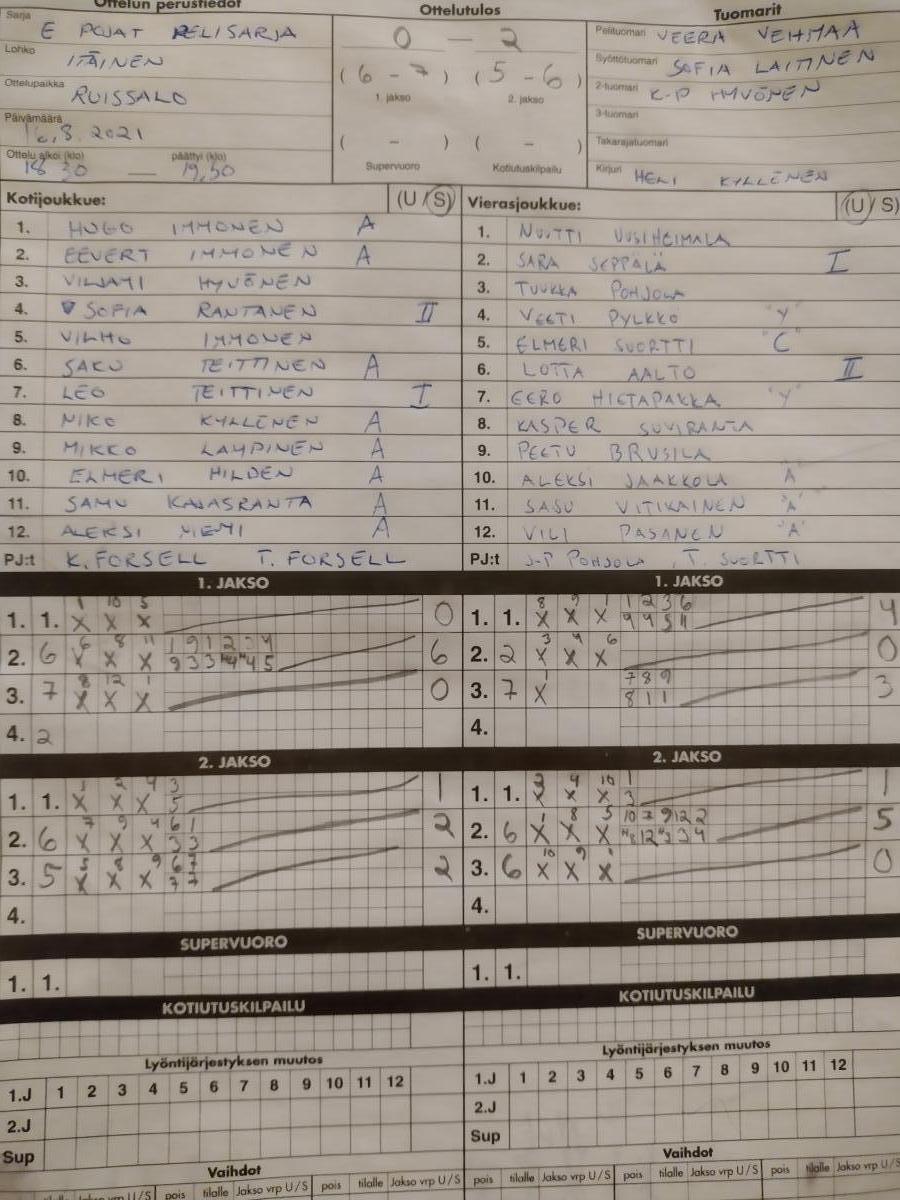 Ottelun perustiedot
Sarja E POJAT PELISARJA
Lohko ITÄINEN
Ottelupaikka RUISSALO
Päivämäärä 16.8.2021
Ottelu alkoi (klo) päättyi (klo)
18 30 — 19.50
Ottelutulos
0 — 2
(6 - 7) (5 - 6)
1. jakso 2. jakso
( - ) ( - )
Supervuoro Kotiutuskilpailu
Tuomarit
Pelituomari VEERA VEHMAA
Syöttötuomari SOFIA LAITINEN
2-tuomari K-P HYVÖNEN
3-tuomari
Takarajatuomari
Kirjuri HELI KYLLÖNEN
Kotijoukkue: (U / S)
1. HUGO IMMONEN A
2. EEVERT IMMONEN A
3. VILJAMI HYVÖNEN
4. SOFIA RANTANEN II
5. VILHO IMMONEN
6. SAKU TEITTINEN A
7. LEO TEITTINEN I
8. NIKO KYLLÖNEN A
9. MIKKO LAMPINEN A
10. ELMERI HILDEN A
11. SAMU KAJASRANTA A
12. ALEKSI NIEMI A
PJ:t K. FORSELL T. FORSELL
Vierasjoukkue: (U / S)
1. NUUTTI UUSIHEIMALA
2. SARA SEPPÄLÄ I
3. TUUKKA POHJOLA
4. VEETI PYLKKÖ "Y"
5. ELMERI SUORTTI "C"
6. LOTTA AALTO II
7. EERO HIETAPAKKA "Y"
8. KASPER SUVIRANTA
9. PEETU BRUSILA
10. ALEKSI JAAKKOLA A
11. SASU VITIKAINEN "A"
12. VILI PASANEN "A"
PJ:t J-P POHJOLA, T. SUORTTI
1. JAKSO
1 10 5
1. 1. X X X 0
6 8 11 1 9 1 2 3 4
2. 6 X X X 9 3 3 "4" 4 5 6
8 12 1
3. 7 X X X 0
4. 2
1. JAKSO
8 9 1 1 2 3 6
1. 1. X X X 4 4 5 11 4
3 4 6
2. 2 X X X 0
1 7 8 9
3. 7 X 8 1 1 3
4.
2. JAKSO
1 2 4 3
1. 1. X X X 5 1
7 9 4 6 1
2. 6 X X X 3 3 2
5 8 9 6 7
3. 5 X X X 7 7 2
4.
2. JAKSO
2 4 10 1
1. 1. X X X 3 1
1 8 5 10 7 9 12 2
2. 6 X X X "8 12 "3 3 4 5
10 9 1
3. 6 X X X 0
4.
SUPERVUORO
1. 1.
SUPERVUORO
1. 1.
KOTIUTUSKILPAILU
KOTIUTUSKILPAILU
Lyöntijärjestyksen muutos
1.J 1 2 3 4 5 6 7 8 9 10 11 12
2.J
Sup
Lyöntijärjestyksen muutos
1.J 1 2 3 4 5 6 7 8 9 10 11 12
2.J
Sup
Vaihdot
tilalle Jakso vrp U/S pois tilalle Jakso vrp U/S pois tilalle Jakso vrp U/S
Vaihdot
pois tilalle Jakso vrp U/S pois tilalle Jakso vrp U/S pois tilalle Jakso vrp U/S